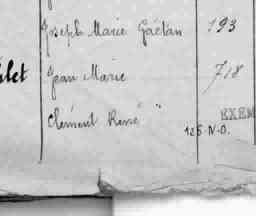 Joseph Marie Gaëtan 193
let Jean Marie 718
Clément René " EXEM
125·N·O.